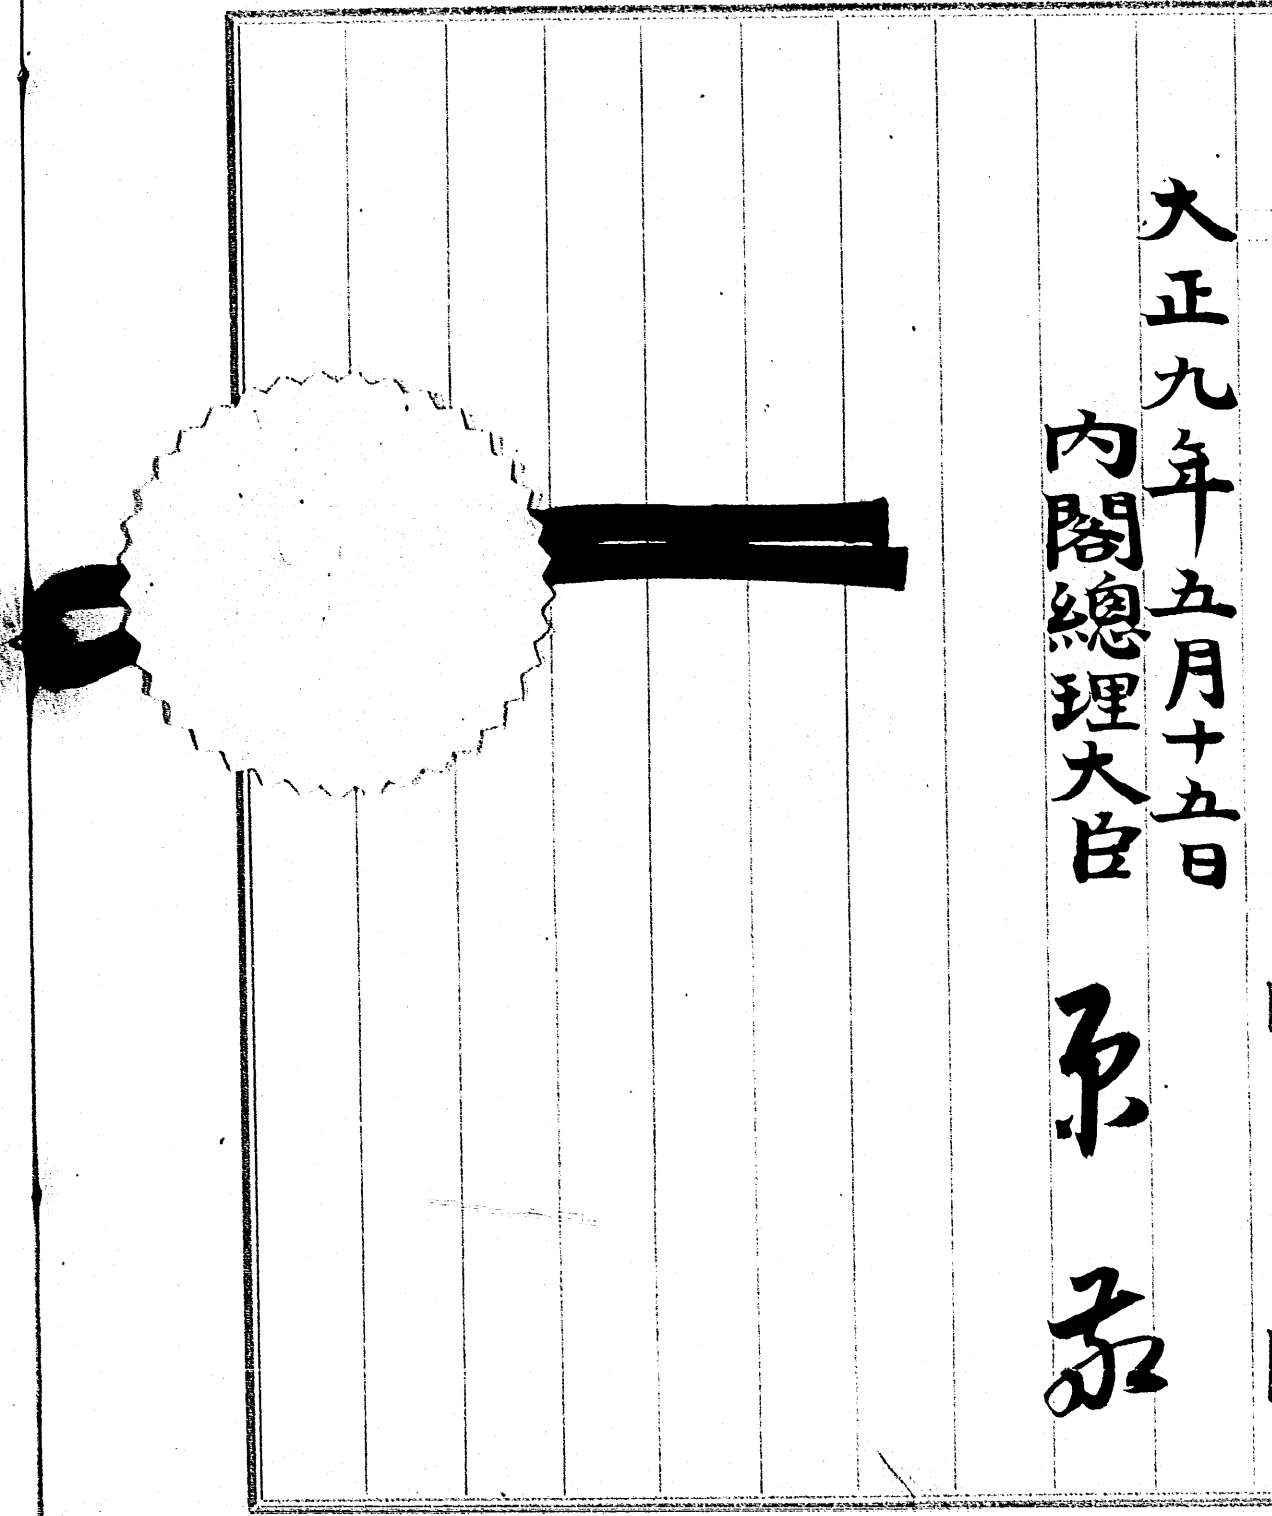 大正九年五月十五日
内閣總理大臣 原 敬